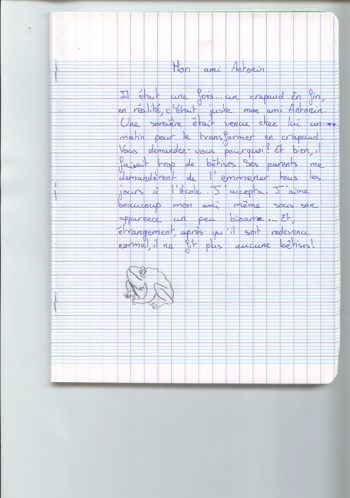 Mon ami Antonin
Il était une fois... un crapaud. En fin,
en réalité, c'était juste mon ami Antonin.
Une sorcière était venue chez lui un
matin pour le transformer en crapaud.
Vous demandez-vous pourquoi? Et bien, il
faisait trop de bêtises. Ses parents me
demandèrent de l'emmener tous les
jours à l'école. J'accepta. J'aime
beaucoup mon ami même sous son
apparence un peu bizarre... Et,
étrangement, après qu'il soit redevenu
normal, il ne fit plus aucune bêtises!